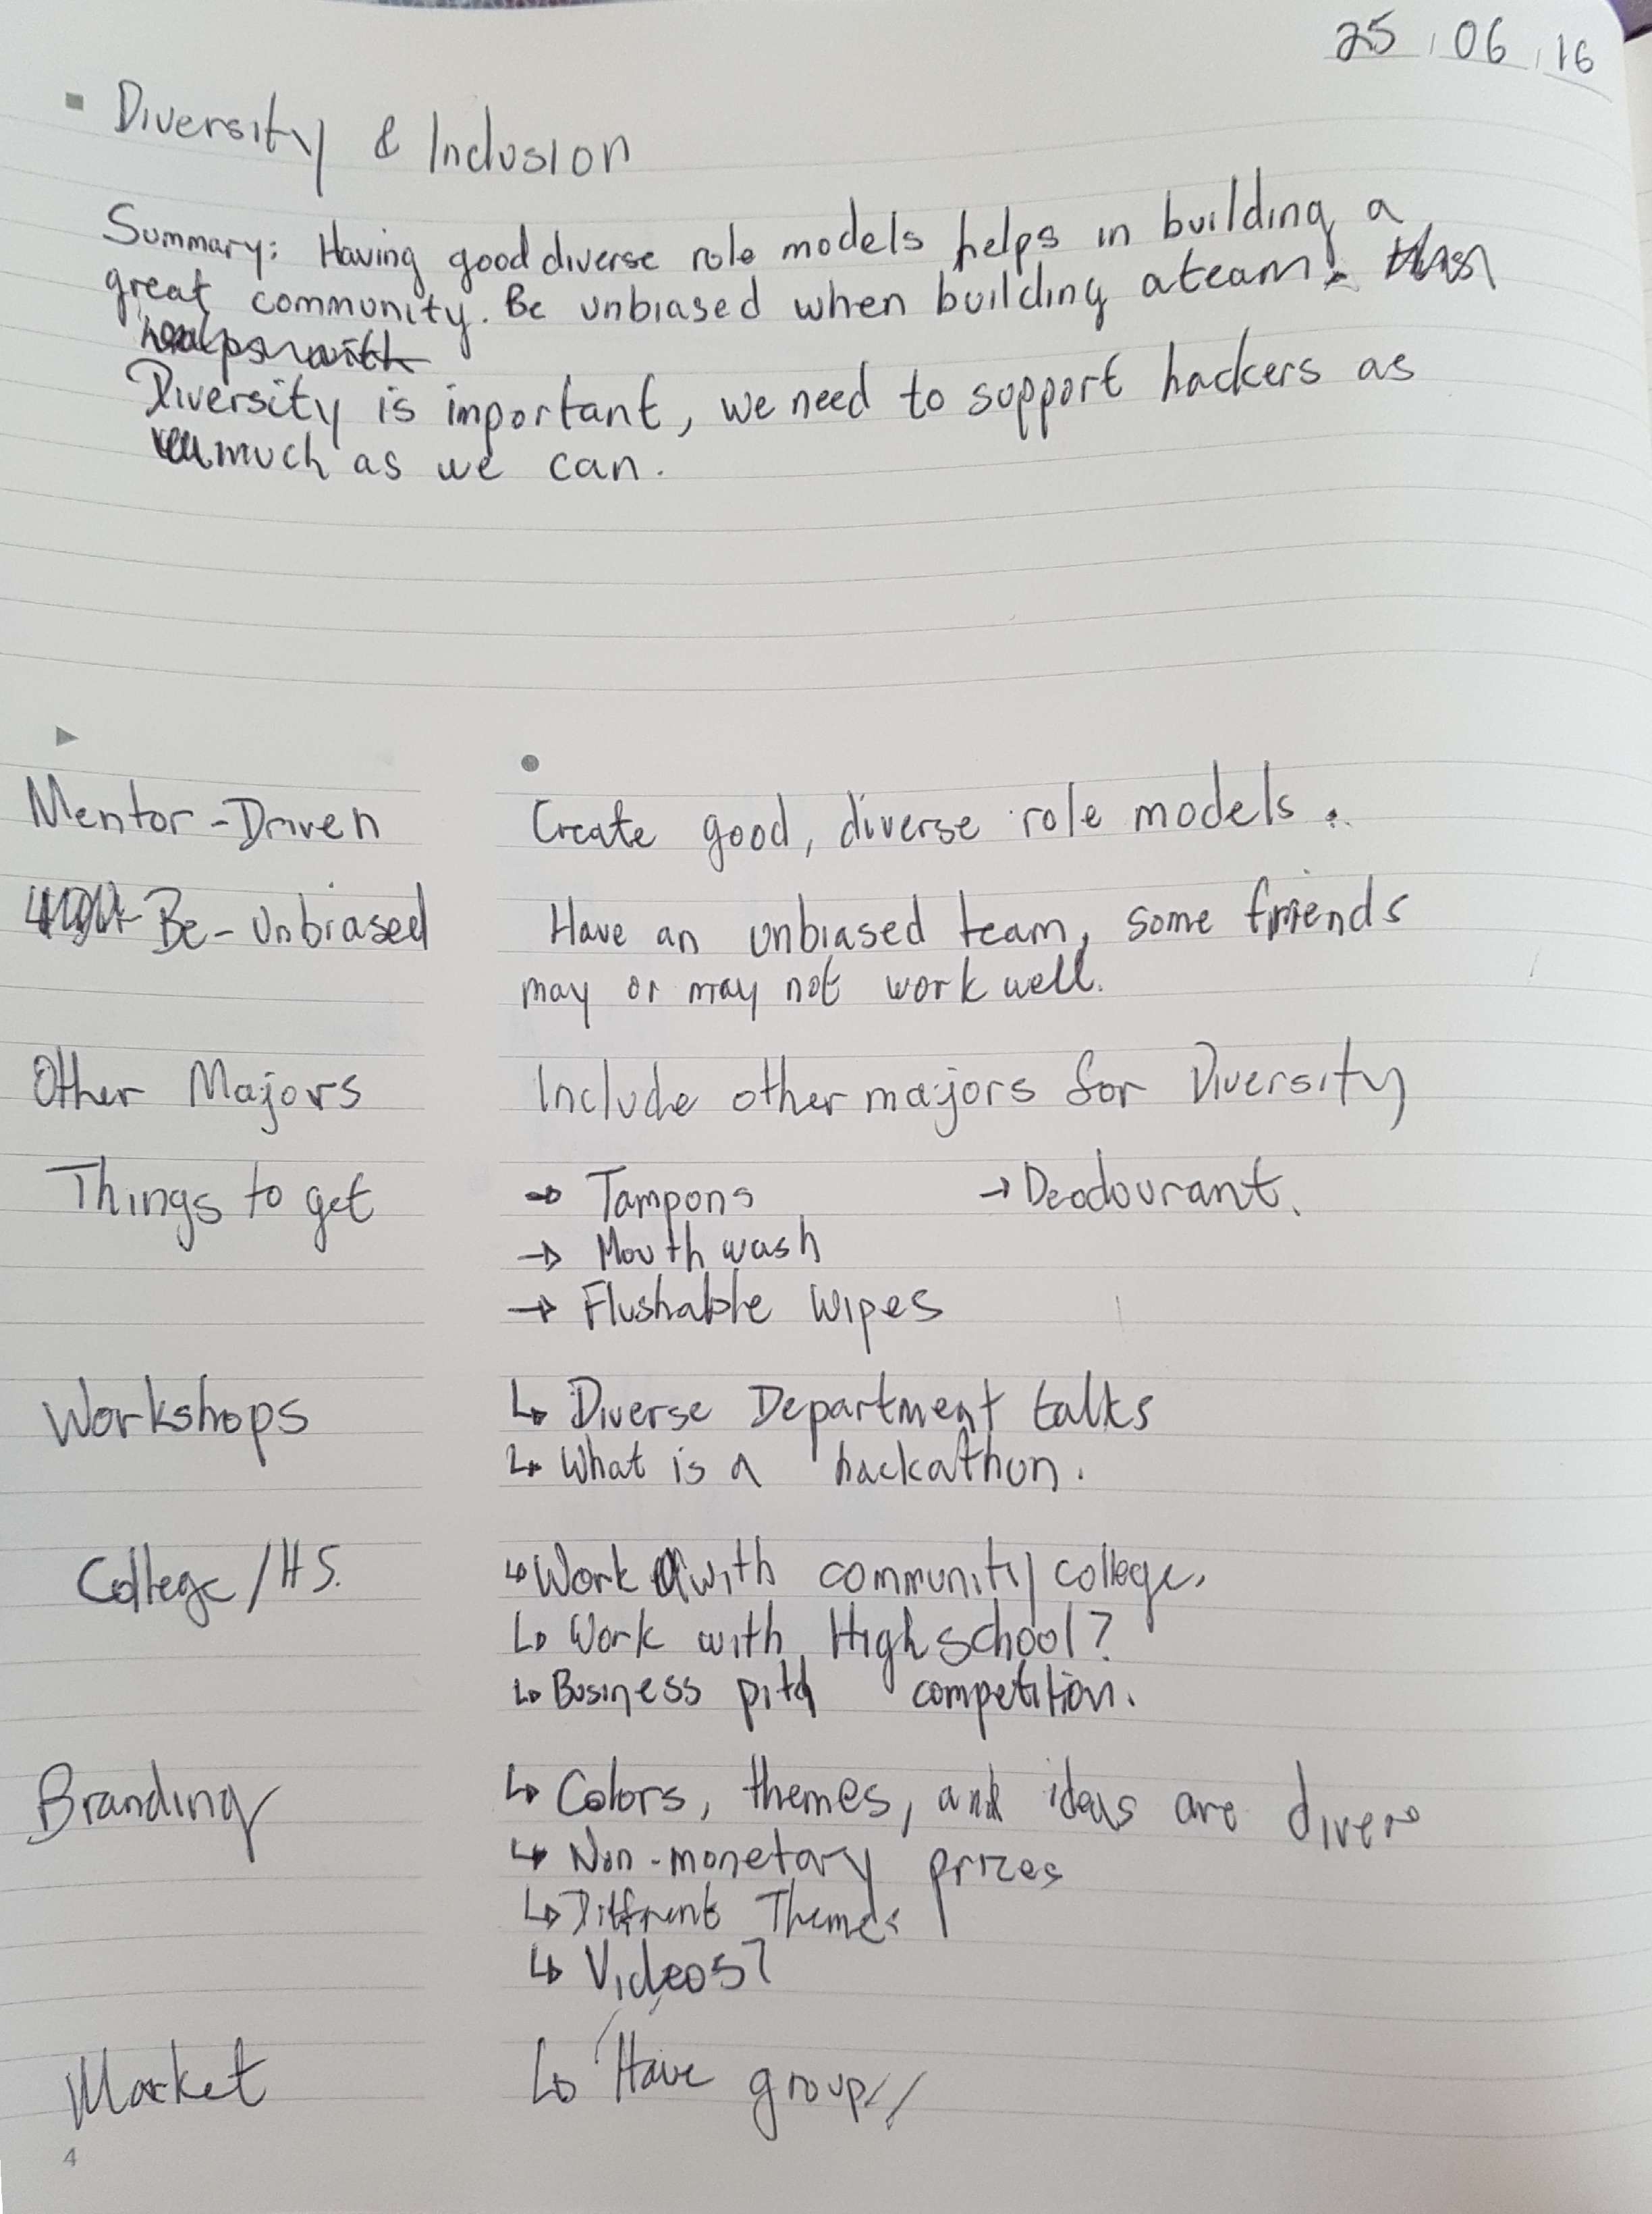 25 / 06 / 16
Diversity & Inclusion
Summary: Having good diverse role models helps in building a
great community. Be unbiased when building a team.
Diversity is important, we need to support hackers as
much as we can.
Mentor-Driven Create good, diverse role models.
Be-Unbiased Have an unbiased team, some friends
may or may not work well.
Other Majors Include other majors for Diversity
Things to get → Tampons → Deodourant.
→ Mouth wash
→ Flushable Wipes
Workshops ↳ Diverse Department talks
↳ What is a hackathon.
College/H S. ↳ Work with community college,
↳ Work with High school?
↳ Business pitch competition.
Branding ↳ Colors, themes, and ideas are diverse
↳ Non-monetary prizes
↳ Diffrent Themes
↳ Videos?
Market ↳ Have group//
4